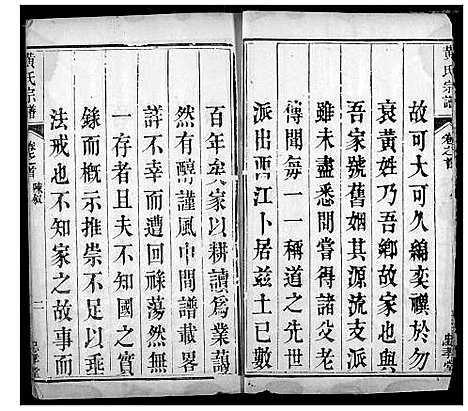 黃氏宗譜
卷之首
故可大可久綿奕禩於勿
衰黃姓乃吾鄉故家也與
吾家號舊姻其源流支派
雖未盡悉嘗聞得諸父老
傳聞每一一稱道之先世
派出西江卜居茲土已數
百年矣家以耕讀爲業藹
然有醇謹風中間譜載畧
詳不幸而遭回祿蕩然無
一存者且夫不知國之實
錄而概示推崇不足以垂
法戒也不知家之故事而
黃氏宗譜
卷之首
陳敘
二
忠孝堂